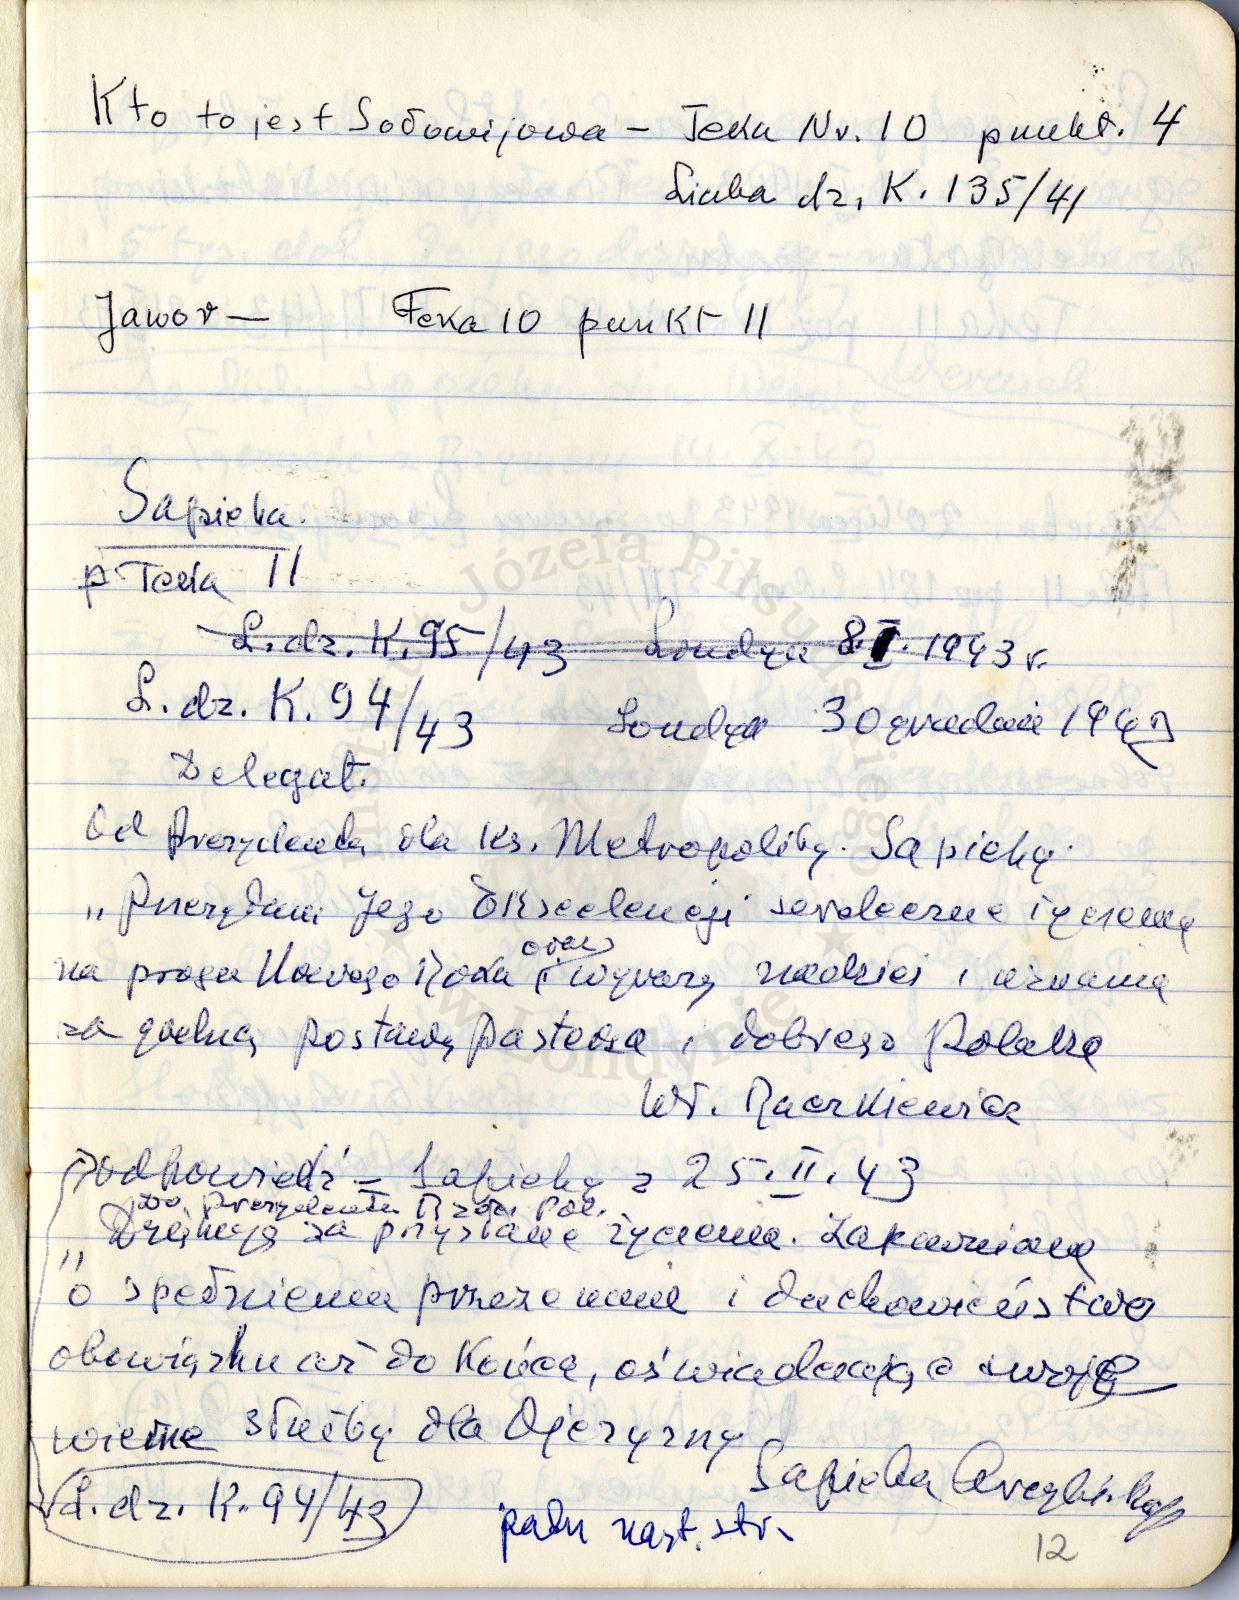 Kto to jest Sołowijowa – Teka Nr. 10 punkt. 4
Liczba dz, K. 135/41
Jawor — Teka 10 punkt 11
Sapieha.
p. Teka 11
L. dz. K. 95/43 Londyn 8.I. 1943 r.
L. dz. K. 94/43 Londyn 30 grudnia 1942
Delegat.
Od Prezydenta dla Ks. Metropolity. Sapiehy.
„Przesyłam Jego Ekscelencji serdeczne życzenia
oraz
na progu Nowego Roku i wyrazy nadziei i uznania
za godną postawę Pasterza i dobrego Polaka
Wł. Raczkiewicz
Odpowiedź – Sapiehy z 25.II.43
Do Prezydenta Rzecz Pol.
„Dziękuję za przysłane życzenia. Zapewniam
o spełnieniu przeze mnie i duchowieństwo
obowiązku aż do Końca, oświadczając swoją
wierne służby dla Ojczyzny
Sapieha Arcybiskup
L. dz. K. 94/43
patrz nast. str.
12
Instytut Józefa Piłsudskiego
★ w Londynie ★